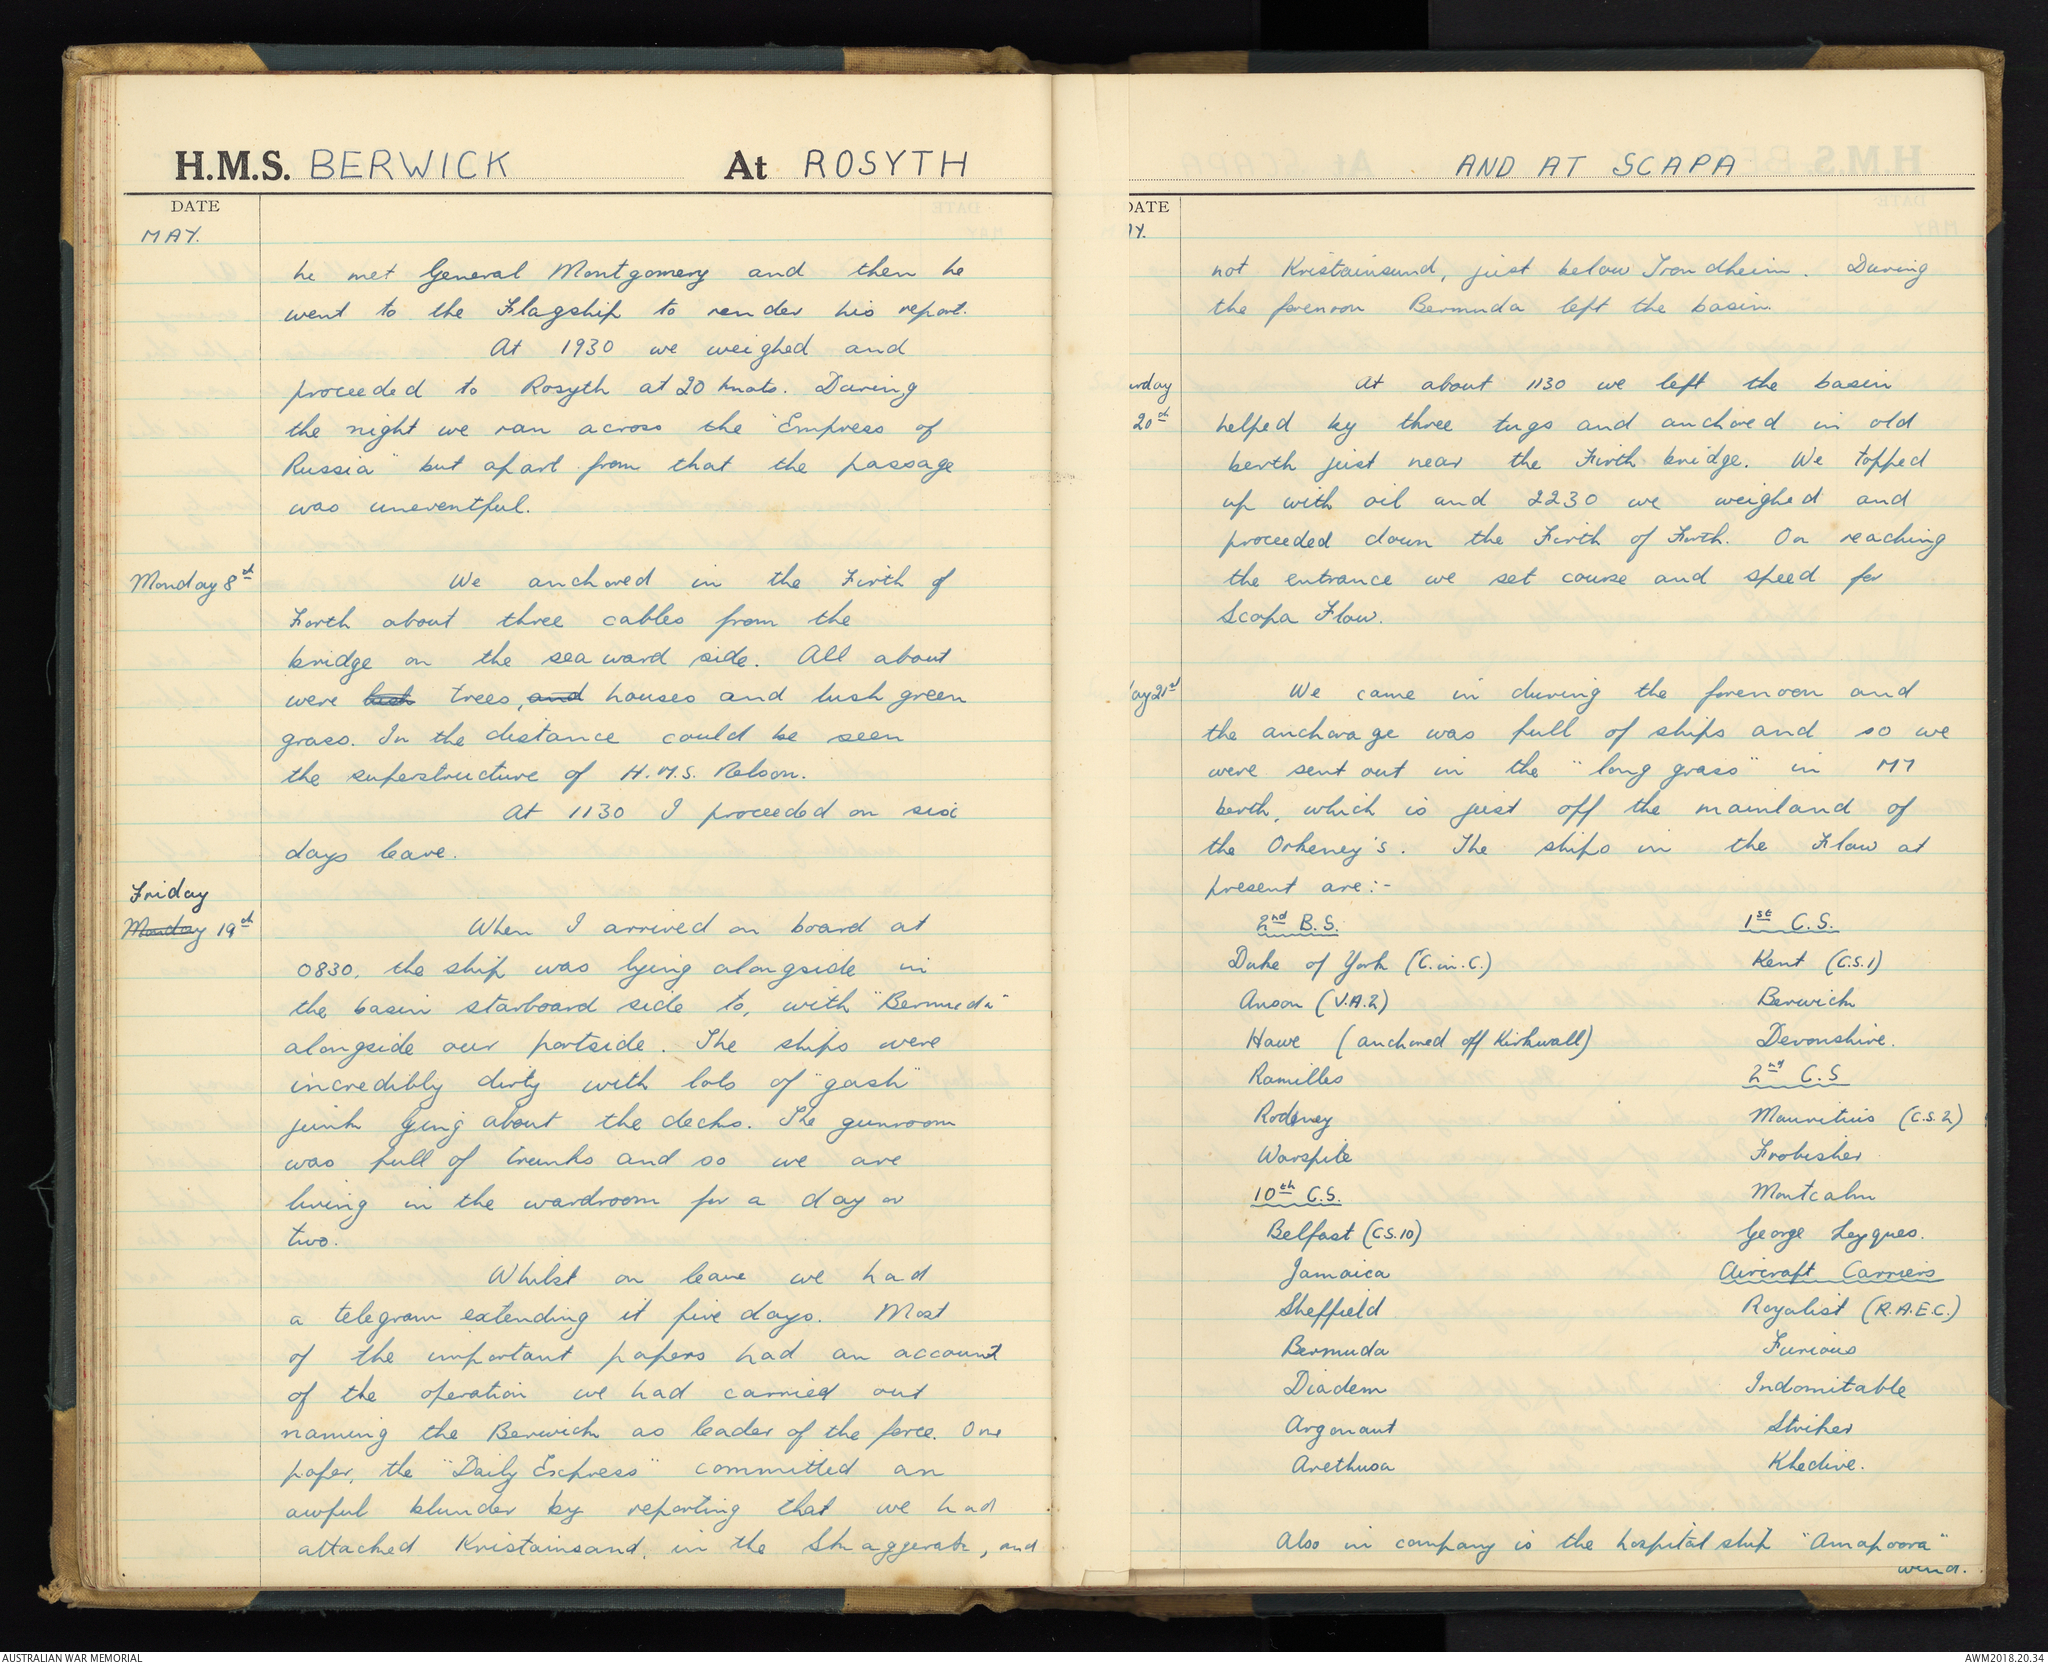 H.M.S. BERWICK At ROSYTH
DATE
MAY.
he met General Montgomery and then he
went to the Flagship to render his report.
At 1930 we weighed and
proceeded to Rosyth at 20 knots. During
the night we ran across the "Empress of
Russia" but apart from that the passage
was uneventful.
Monday 8th We anchored in the Firth of
Forth about three cables from the
bridge on the seaward side. All about
were lush trees, and houses and lush green
grass. In the distance could be seen
the superstructure of H.M.S. Nelson.
At 1130 I proceeded on six
days leave.
Friday
Monday 19th When I arrived on board at
0830, the ship was lying alongside in
the basin starboard side to, with "Bermuda"
alongside our portside. The ships were
incredibly dirty with lots of "gash"
junk lying about the decks. The gunroom
was full of trunks and so we are
living in the wardroom for a day or
two.
Whilst on leave we had
a telegram extending it five days. Most
of the important papers had an account
of the operation we had carried out
naming the Berwick as leader of the force. One
paper, the "Daily Express" committed an
awful blunder by reporting that we had
attacked Kristainsand, in the Skaggerak, and
AND AT SCAPA
DATE
AY.
not Kristainsund, just below Trondheim. During
the forenoon Bermuda left the basin.
urday At about 1130 we left the basin
20th helped by three tugs and anchored in old
berth just near the Firth bridge. We topped
up with oil and 2230 we weighed and
proceeded down the Firth of Forth. On reaching
the entrance we set course and speed for
Scapa Flow.
ay 21st We came in during the forenoon and
the anchorage was full of ships and so we
were sent out in the "long grass" in M7
berth, which is just off the mainland of
the Orkeney's. The ships in the Flow at
present are:-
2nd B.S. 1st C.S.
Duke of York (C.in.C.) Kent (C.S.1)
Anson (V.A.2) Berwick
Howe (anchored off Kirkwall) Devonshire.
Ramilles 2nd C.S
Rodney Mauritius (C.S.2)
Warspite Frobisher
10th C.S. Montcalm
Belfast (C.S.10) George Leygues.
Jamaica Aircraft Carriers
Sheffield Royalist (R.A.E.C.)
Bermuda Furious
Diadem Indomitable
Argonaut Striker
Arethusa Khedive.
Also in company is the hospital ship "Amapoora"
AUSTRALIAN WAR MEMORIAL AWM2018.20.34